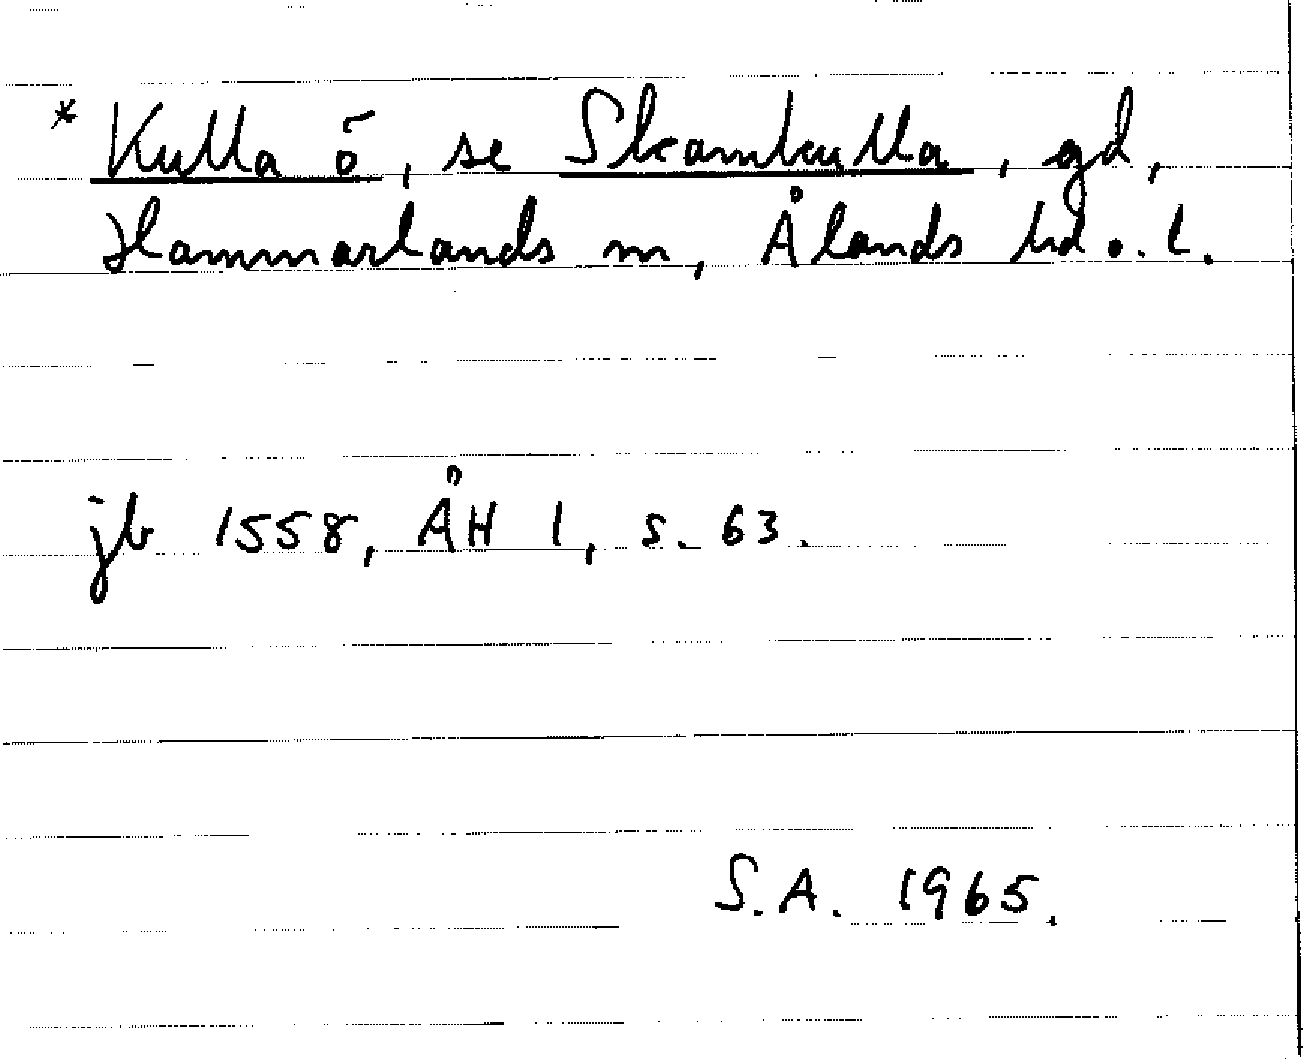 * Kulla ö, se Skamkulla, gd,
Hammarlands sn, Ålands hd o. l.
jb 1558, ÅH 1, s. 63.
S.A. 1965.